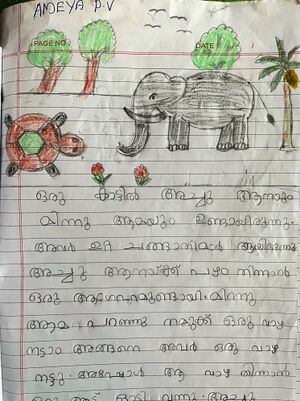 AMEYA P.V
PAGE NO: DATE:
ഒരു കാട്ടിൽ അച്ചു ആനയും
മിന്നു ആമയും ഉണ്ടായിരുന്നു.
അവർ ഉറ്റ ചങ്ങാതിമാർ ആയിരുന്നു
അച്ചു ആനയ്ക്ക് പഴം തിന്നാൻ
ഒരു ആഗ്രഹമുണ്ടായി. മിന്നു
ആമ പറഞ്ഞു നമുക്ക് ഒരു വാഴ
നടാം അങ്ങനെ അവർ ഒരു വാഴ
നട്ടു. അപ്പോൾ ആ വാഴ തിന്നാൻ
ഒരു ആട് ഓടി വന്നു. അച്ചു